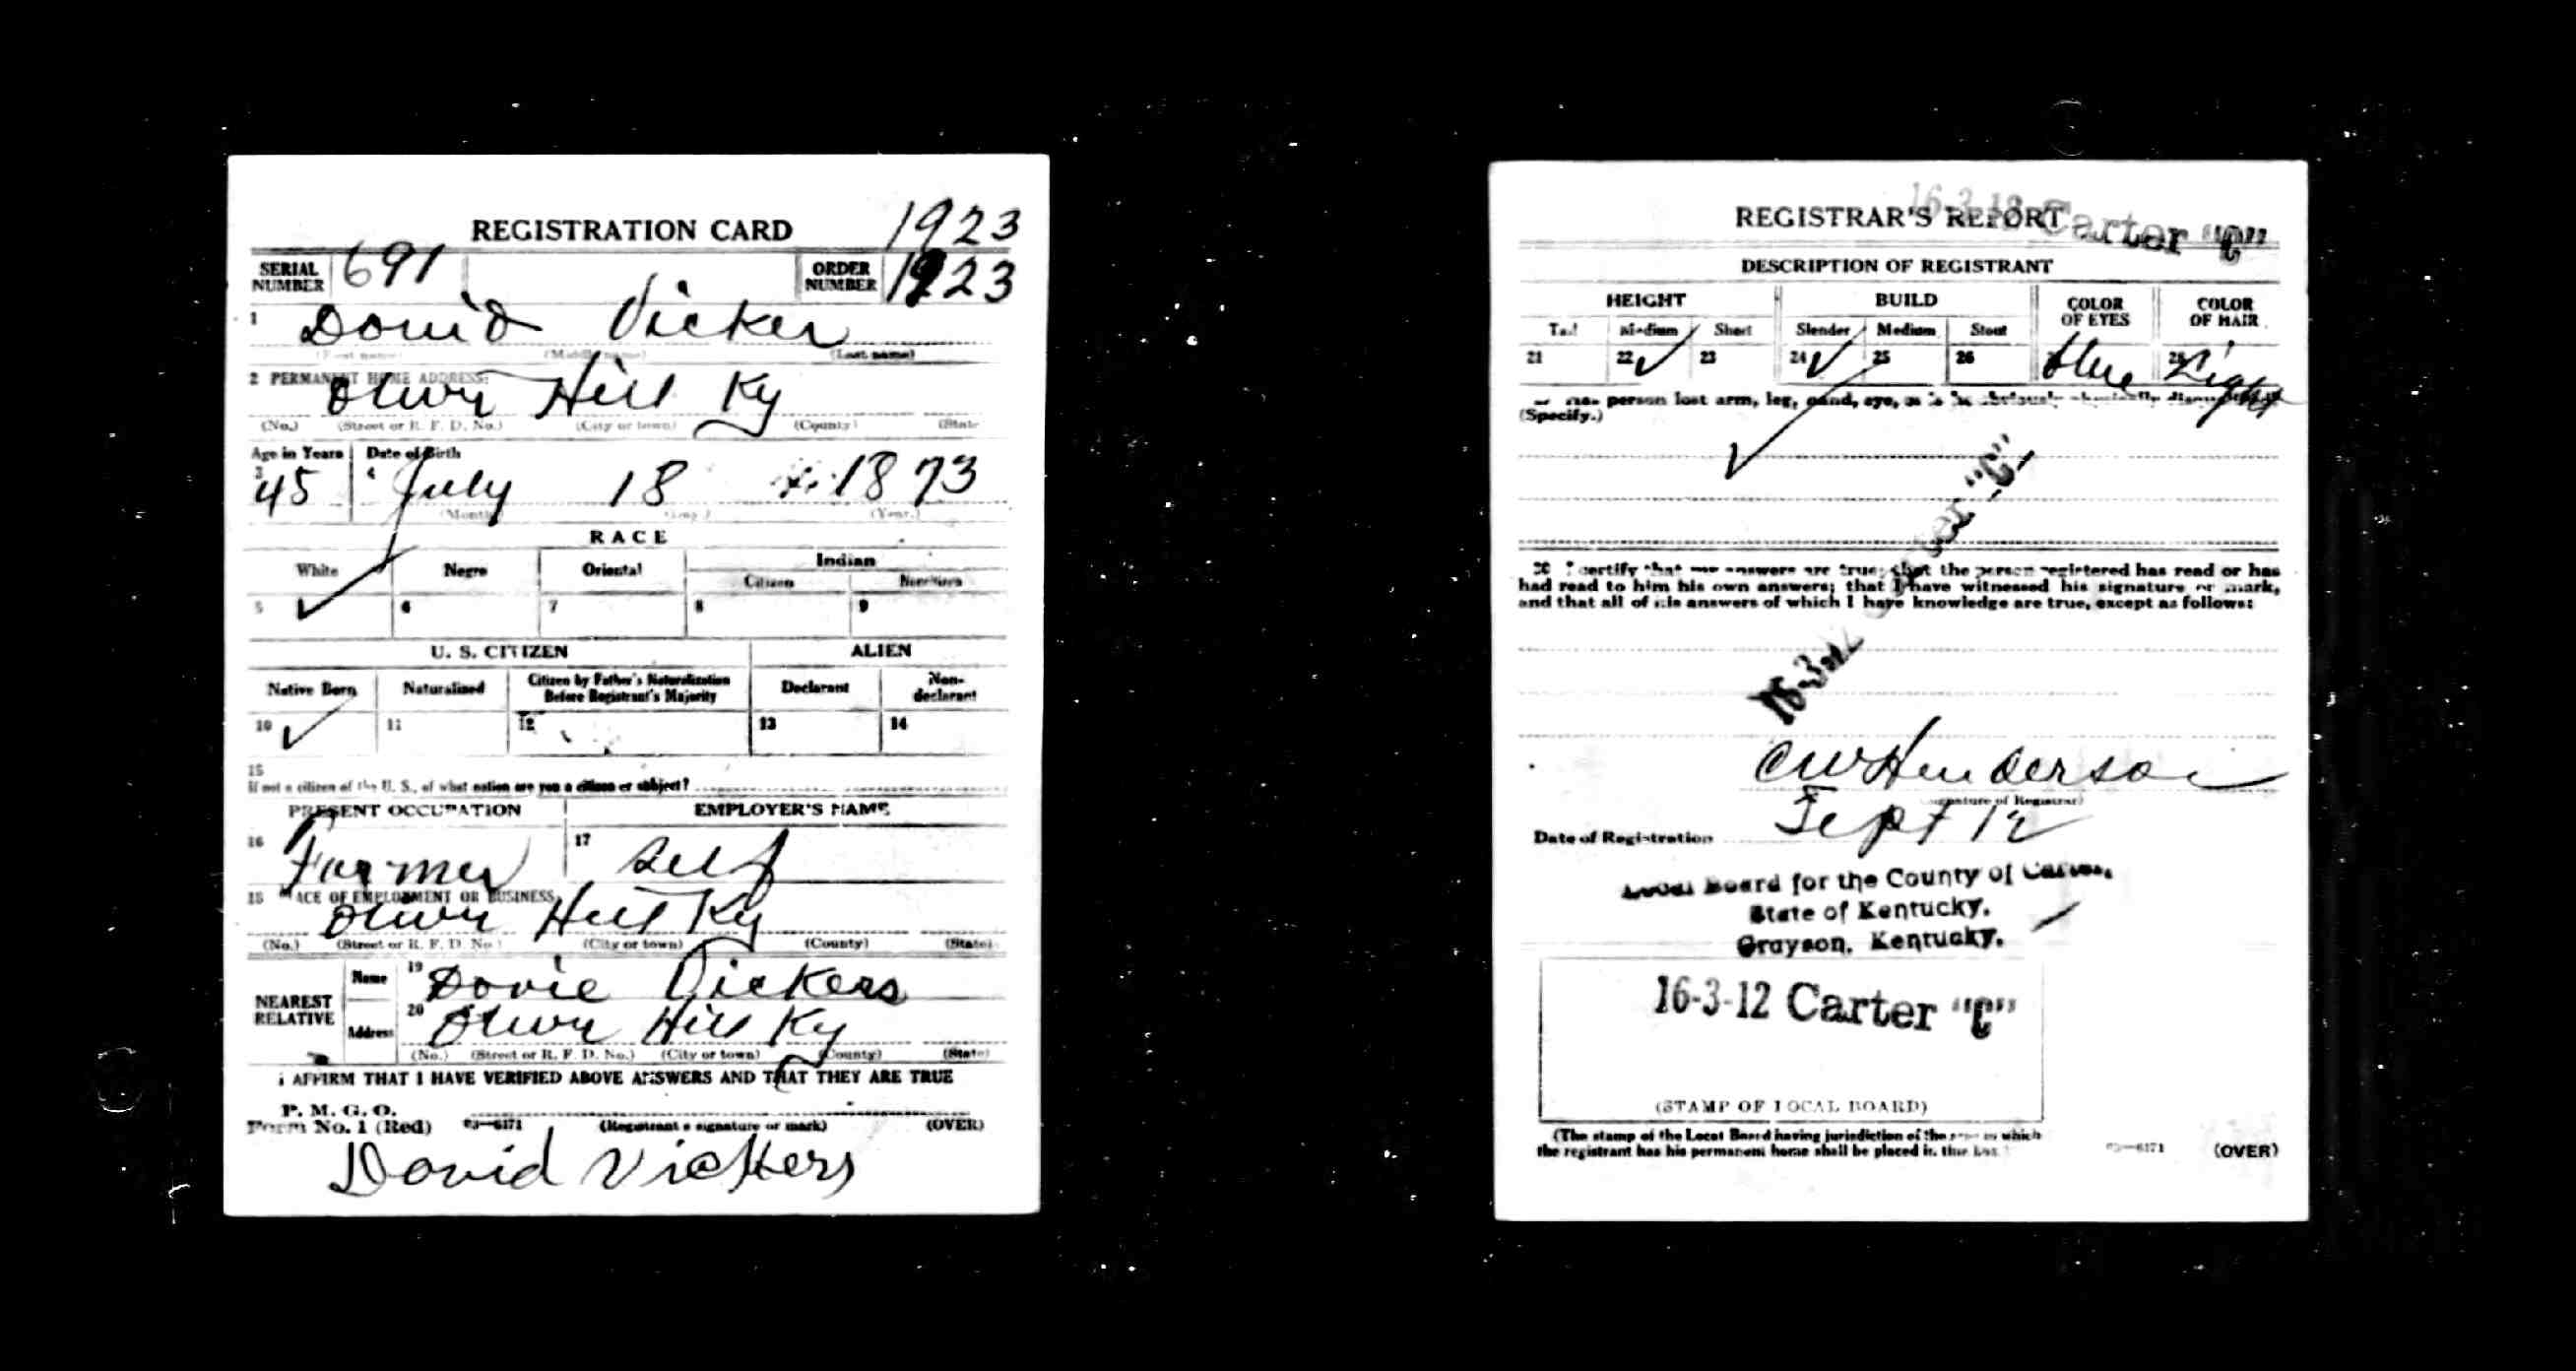 REGISTRATION CARD 1923
SERIAL NUMBER 691 ORDER NUMBER 1923
1 David Vicker
(First name) (Middle name) (Last name)
2 PERMANENT HOME ADDRESS:
Olive Hill Ky
(No.) (Street or R. F. D. No.) (City or town) (County) (State)
Age in Years Date of Birth
3 45 4 July 18 1873
(Month) (Day.) (Year.)
RACE
White Negro Oriental Indian
Citizen Noncitizen
5 ✓ 6 7 8 9
U. S. CITIZEN ALIEN
Native Born Naturalized Citizen by Father's Naturalization Before Registrant's Majority Declarant Non-declarant
10 ✓ 11 12 13 14
15
If not a citizen of the U. S., of what nation are you a citizen or subject?
PRESENT OCCUPATION EMPLOYER'S NAME
16 Farmer 17 Self
18 PLACE OF EMPLOYMENT OR BUSINESS
Olive Hill Ky
(No.) (Street or R. F. D. No.) (City or town) (County) (State)
NEAREST RELATIVE Name 19 Dovie Vickers
Address 20 Olive Hill Ky
(No.) (Street or R. F. D. No.) (City or town) (County) (State)
I AFFIRM THAT I HAVE VERIFIED ABOVE ANSWERS AND THAT THEY ARE TRUE
P. M. G. O.
Form No. 1 (Red) 03—6171 (Registrant's signature or mark) (OVER)
David Vickers
REGISTRAR'S REPORT
16-3-12 Carter "C"
DESCRIPTION OF REGISTRANT
HEIGHT BUILD COLOR OF EYES COLOR OF HAIR
Tall Medium Short Slender Medium Stout
21 22 ✓ 23 24 ✓ 25 26 Blue 28 Light
person lost arm, leg, hand, eye, or is he obviously physically disqualified?
(Specify.)
✓
16-3-12 Carter "C"
30 I certify that my answers are true; that the person registered has read or has
had read to him his own answers; that I have witnessed his signature or mark,
and that all of his answers of which I have knowledge are true, except as follows:
C W Henderson
(Signature of Registrar)
Date of Registration Sept 12
Local Board for the County of Carter,
State of Kentucky,
Grayson, Kentucky.
16-3-12 Carter "C"
(STAMP OF LOCAL BOARD)
(The stamp of the Local Board having jurisdiction of the area in which
the registrant has his permanent home shall be placed in this box.)
03—6171 (OVER)